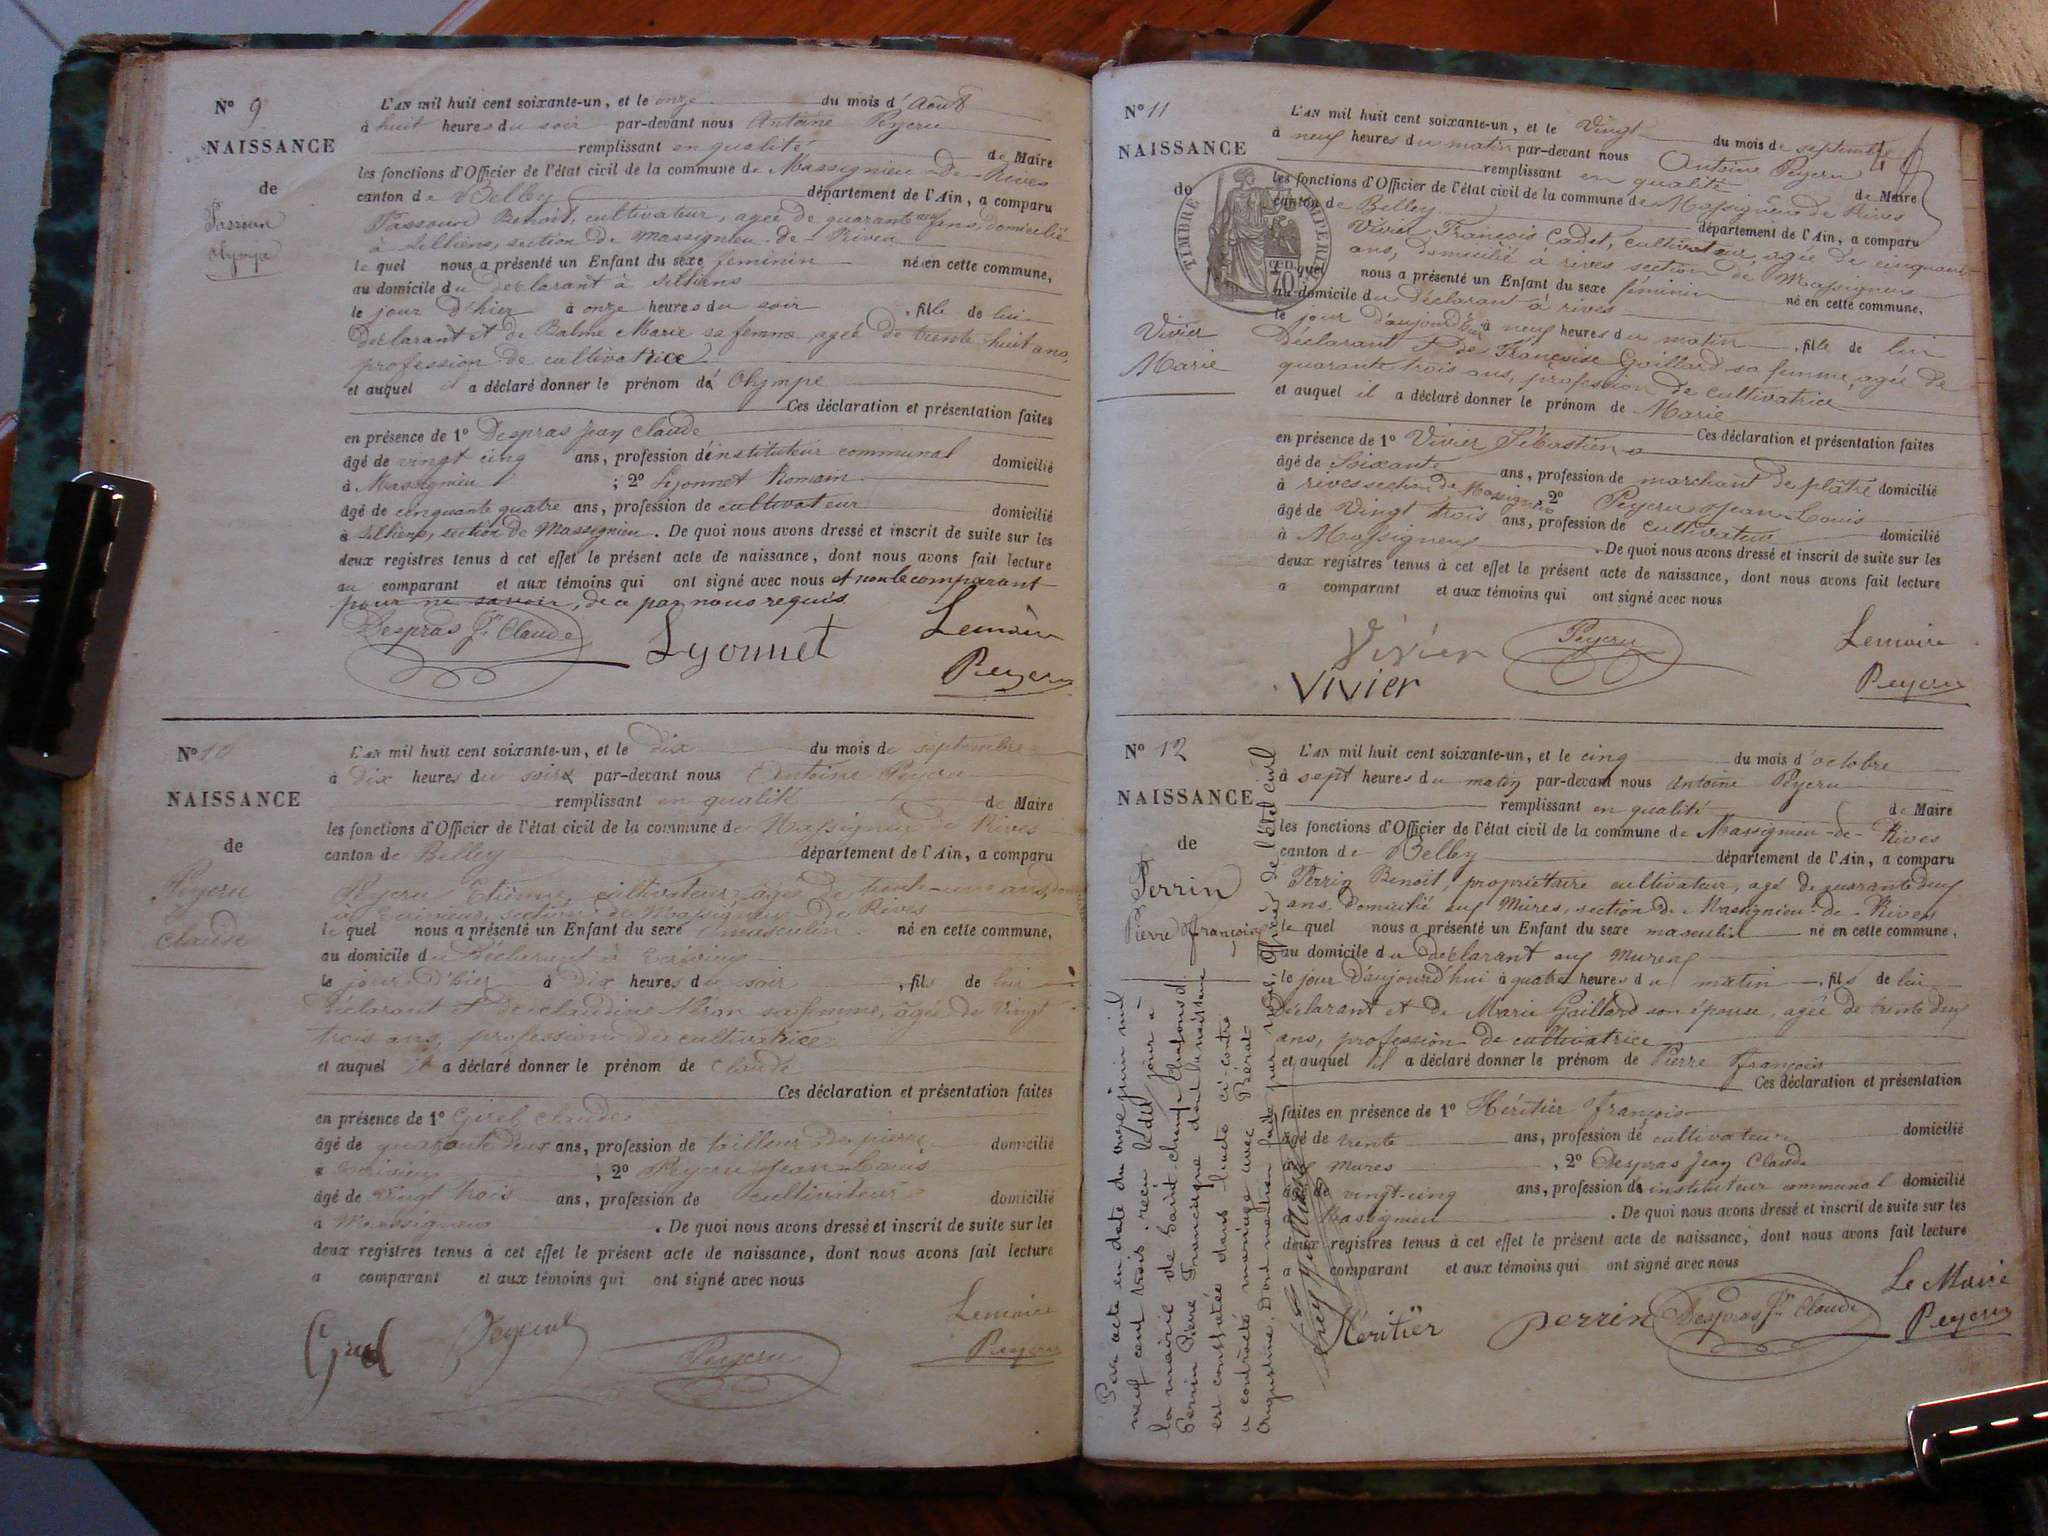 N° 9
NAISSANCE
de
Passerin
Olympe
L'AN mil huit cent soixante-un, et le onze du mois d'Août
à huit heures du soir par-devant nous Antoine Peyeru
remplissant en qualité de Maire
les fonctions d'Officier de l'état civil de la commune de Massignieu-de-Rives
canton de Belley département de l'Ain, a comparu
Benoit, cultivateur, agée de quarante ans, domicilié
à Silliens, section de Massignieu-de-Rives
le quel nous a présenté un Enfant du sexe feminin né en cette commune,
au domicile du déclarant à Silliens
le jour d'hier à onze heures du soir , fille de lui
déclarant et de Balme Marie sa femme, agée de trente huit ans,
profession de cultivatrice
et auquel a déclaré donner le prénom de Olympe
Ces déclaration et présentation faites
en présence de 1° Despras Jean Claude
âgé de vingt cinq ans, profession d'instituteur communal domicilié
à Massignieu ; 2° Lyonnet Romain
âgé de cinquante quatre ans, profession de cultivateur domicilié
à Silliens, section de Massignieu. De quoi nous avons dressé et inscrit de suite sur les
deux registres tenus à cet effet le présent acte de naissance, dont nous avons fait lecture
au comparant et aux témoins qui ont signé avec nous et non le comparant
pour ne savoir, de ce par nous requis
Despras Jn Claude Lyonnet Lemaire
Peyeru
N° 10
NAISSANCE
de
Peyeru
Claude
L'AN mil huit cent soixante-un, et le dix du mois de septembre
à dix heures du soir par-devant nous Antoine Peyeru
remplissant en qualité de Maire
les fonctions d'Officier de l'état civil de la commune de Massignieu de Rives
canton de Belley département de l'Ain, a comparu
Peyeru Etienne, cultivateur, âgé de trente-un ans,
section de Massignieu-de Rives
le quel nous a présenté un Enfant du sexe masculin né en cette commune,
au domicile du Déclarant à
le jour d'hier à dix heures du soir , fils de lui
Déclarant et de Claudine Néran sa femme, agée de Vingt
trois ans, profession de cultivatrice
et auquel il a déclaré donner le prénom de Claude
Ces déclaration et présentation faites
en présence de 1° Girel Claude
âgé de quarante deux ans, profession de tailleur de pierre domicilié
à ; 2° Peyeru Jean-Louis
âgé de vingt trois ans, profession de cultivateur domicilié
à Massignieu . De quoi nous avons dressé et inscrit de suite sur les
deux registres tenus à cet effet le présent acte de naissance, dont nous avons fait lecture
a comparant et aux témoins qui ont signé avec nous
Girel Peyeru Peyeru Lemaire
Peyeru
N° 11
NAISSANCE
de
TIMBRE IMPERIAL
Vivier
Marie
L'AN mil huit cent soixante-un, et le Vingt du mois de septembre
à neuf heures du matin par-devant nous Antoine Peyeru
remplissant en qualité de Maire
les fonctions d'Officier de l'état civil de la commune de Massignieu de Rives
canton de Belley département de l'Ain, a comparu
Vivier François Cadet, cultivateur, agée de cinquante
ans, domicilié à rives section de Massignieu
le quel nous a présenté un Enfant du sexe féminin né en cette commune,
au domicile du Déclarant à rives
le jour d'aujourd'hui à neuf heures du matin , fille de lui
Déclarant & de Françoise Gaillard sa femme, agée de
quarante trois ans, profession de cultivatrice
et auquel il a déclaré donner le prénom de Marie
Ces déclaration et présentation faites
en présence de 1° Vivier Sébastien
âgé de Soixante ans, profession de marchant de plâtre domicilié
à rives section de Massignieu 2° Peyeru Jean Louis
âgé de Vingt trois ans, profession de cultivateur domicilié
à Massigneu . De quoi nous avons dressé et inscrit de suite sur les
deux registres tenus à cet effet le présent acte de naissance, dont nous avons fait lecture
a comparant et aux témoins qui ont signé avec nous
Vivier Peyeru Lemaire
Vivier Peyeru
N° 12
NAISSANCE
de
Perrin
Pierre François
L'AN mil huit cent soixante-un, et le cinq du mois d'octobre
à sept heures du matin par-devant nous Antoine Peyeru
remplissant en qualité de Maire
les fonctions d'Officier de l'état civil de la commune de Massignieu-de-Rives
canton de Belley département de l'Ain, a comparu
Perrin Benoit, propriétaire cultivateur, agé de quarante deux
ans, domicilié aux Mures, section de Massignieu-de-Rives
le quel nous a présenté un Enfant du sexe masculin né en cette commune,
au domicile du déclarant aux Mures
le jour d'aujourd'hui à quatre heures du matin , fils de lui
Déclarant et de Marie Gaillard son épouse, agée de trente deux
ans, profession de cultivatrice
et auquel il a déclaré donner le prénom de Pierre François
Ces déclaration et présentation
faites en présence de 1° Héritier François
âgé de trente ans, profession de cultivateur domicilié
aux mures , 2° Despras Jean Claude
âgé de vingt-cinq ans, profession de instituteur communal domicilié
à Massignieu . De quoi nous avons dressé et inscrit de suite sur les
deux registres tenus à cet effet le présent acte de naissance, dont nous avons fait lecture
a comparant et aux témoins qui ont signé avec nous
Héritier perrin Despras Jn Claude Le Maire
Peyeru
Par acte en date du onze juin mil
neuf cent trois, reçu ledit jour à
la mairie de Saint-
Perrin Pierre François dont la naissance
est constatée dans l'acte ci-contre
a contracté mariage avec
Dont mention faite par nous, Officier de l'état civil